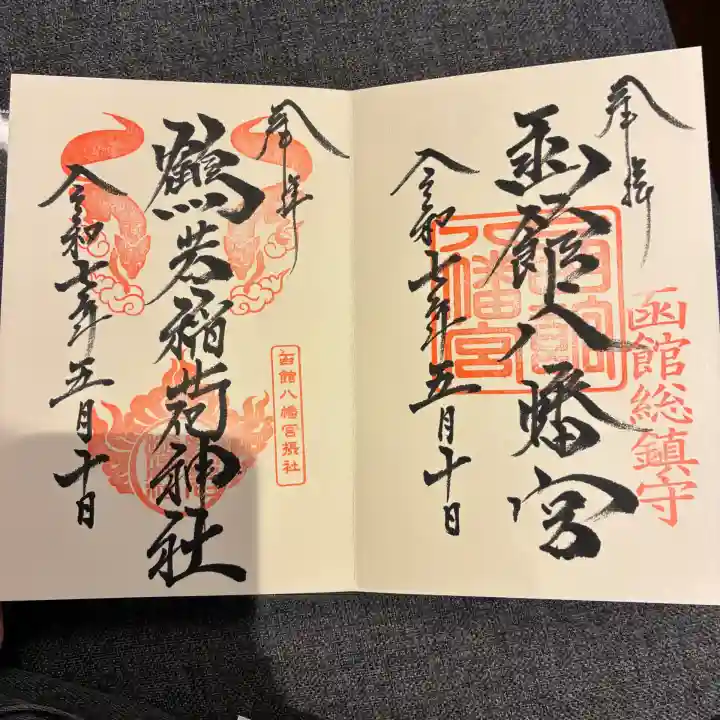 奉拝
函館八幡宮
函館総鎮守
函館八幡宮
令和七年五月十日
奉拝
鶴若稲荷神社
函館八幡宮摂社
令和七年五月十日